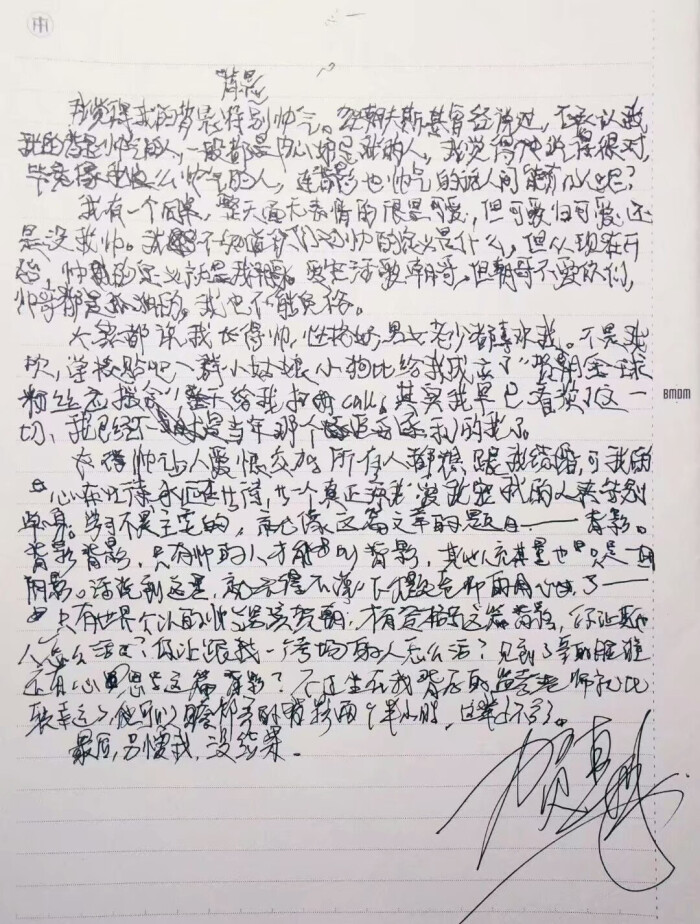 背影
我觉得我的背影特别帅气。贺朝夫斯基曾经说过,不承认我
我的背影帅气的人,一般都是内心嫉妒我的人,我觉得他说得很对,
毕竟像我这么帅气的人,连背影也帅气的话人间能有几人呢?
我有一个同桌,整天面无表情的很是可爱,但可爱归可爱,还
是没我帅。我不知道你们对帅的定义是什么,但从现在开
始,帅的定义就是我贺朝。要生活要朝哥,但朝哥不爱你们,
帅哥都是孤独的。我也不能免俗。
大家都说我长得帅,性格好男女老少都喜欢我。不是我
吹,学校贴吧一群小姑娘小狗比给我成立了"贺朝全球
粉丝应援会"整天给我打call。其实我早已看淡了这一
切,我已经不是当年那个的我了。
长得帅让人爱恨交加,所有人都想跟我结婚,可我的
心在等待永远在等待,等一个真正
单身。学习不是主宰的,就像这篇文章的题目——背影。
背影背影,只有帅的人才能叫背影,其他人充其量也只是
阴影。话说到这里,就不得不提一下出题老师的用心了——
只有世界公认的帅哥贺朝,才有资格写这篇背影,你让其他
人怎么活?你让跟我一考场的人怎么活?见到了我的脸谁
还有心思写这篇背影?不过坐在我背后的监考老师就比
较幸运了,他可以瞻仰我的背影两个半小时,这辈子不亏了。
最后,别爱我,没结果.
贺朝
BMDM